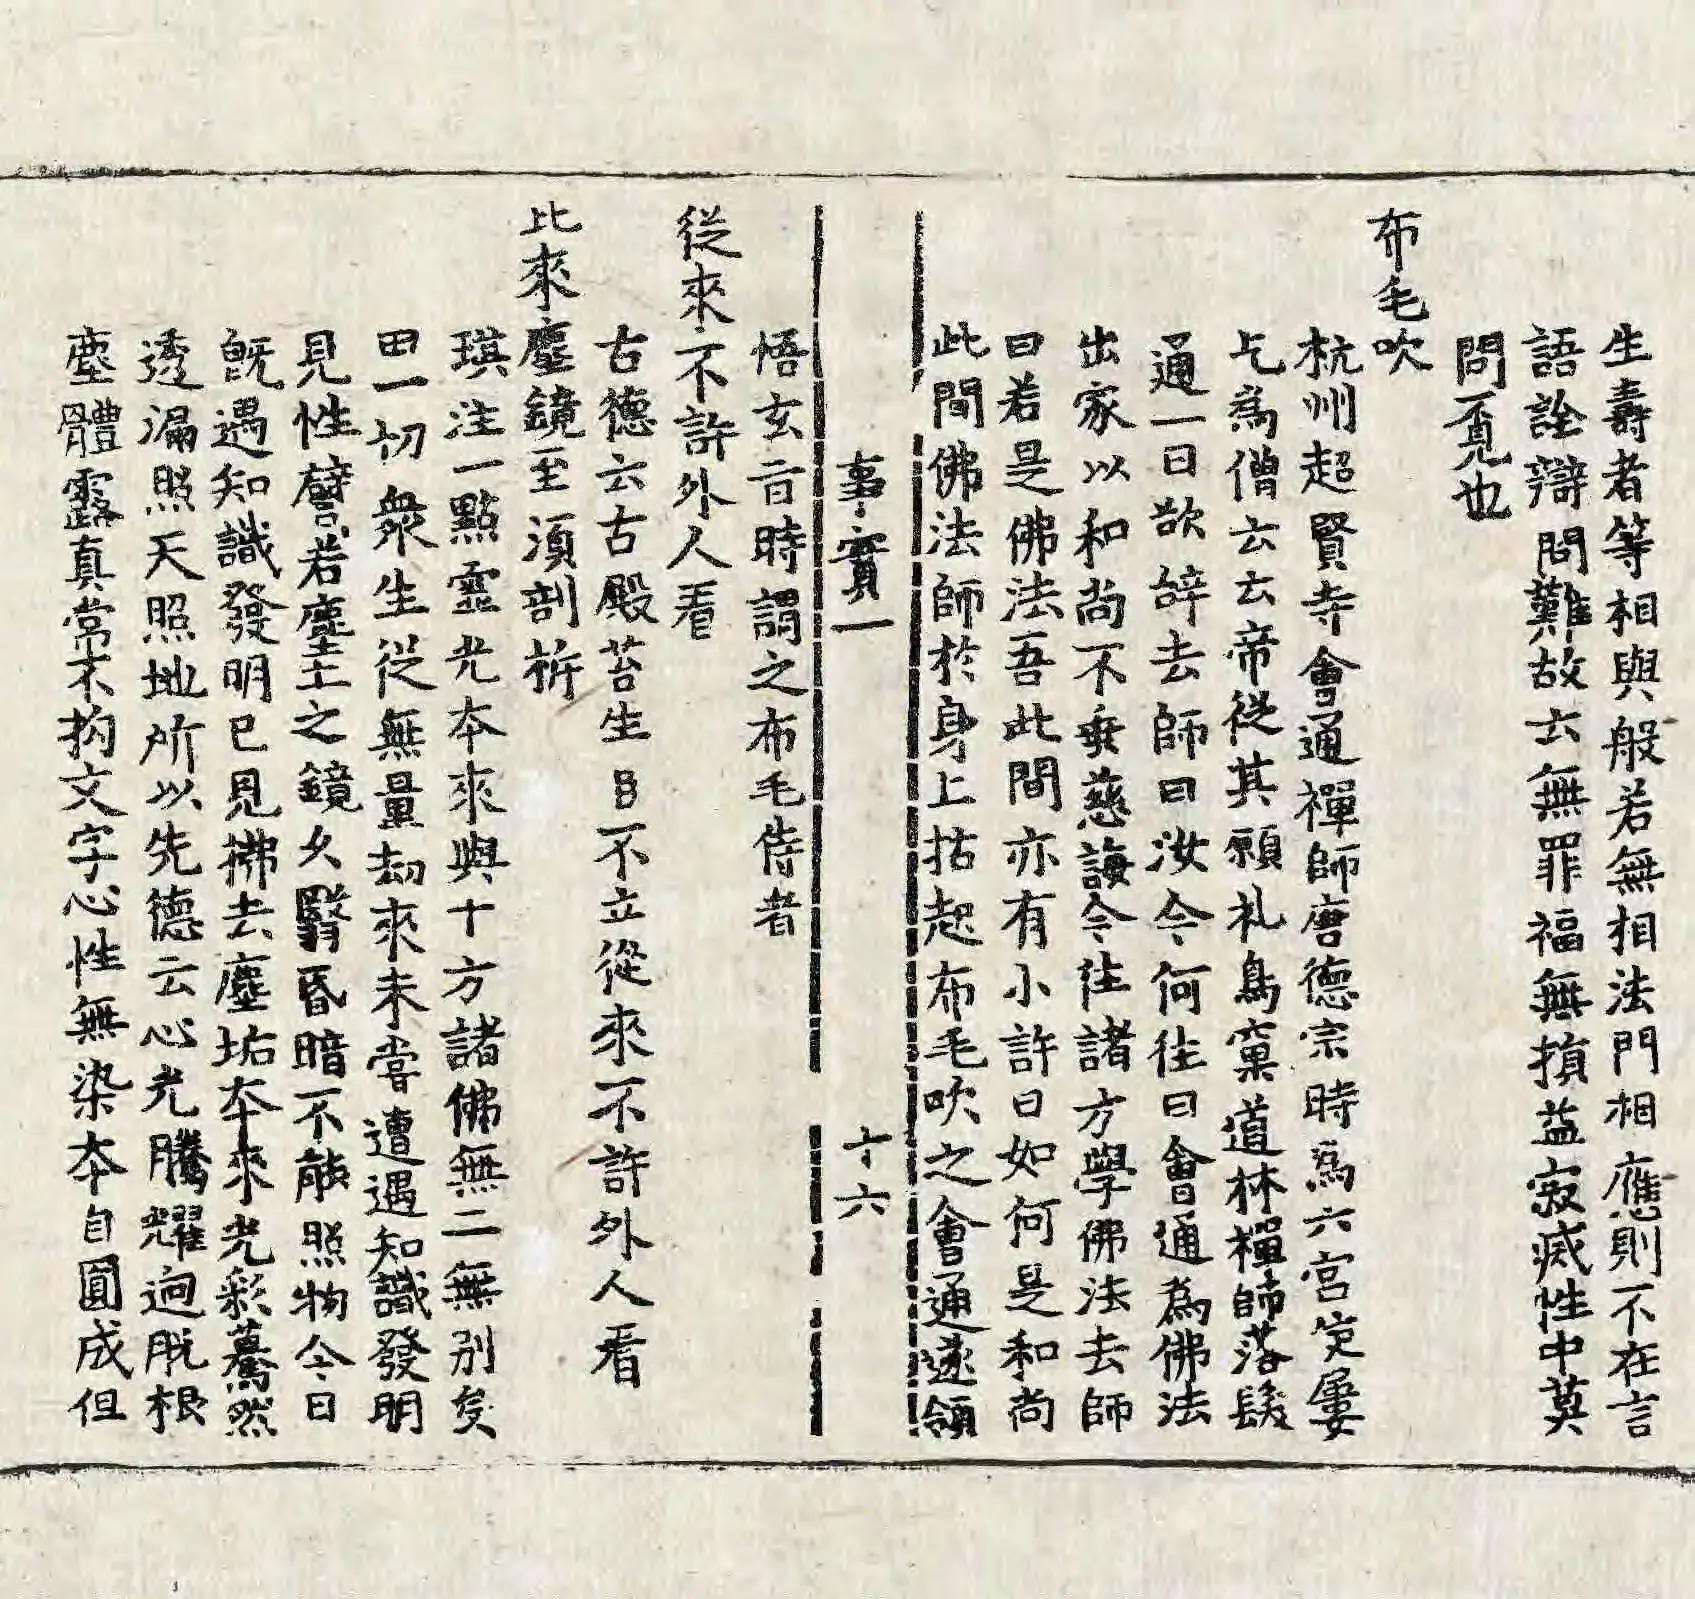 生壽者等相與般若無相法門相應則不在言
語詮辯問難故云無罪福無損益寂滅性中莫
問覓也
布毛吹
杭州超賢寺會通禪師唐德宗時爲六宮使屢
乞爲僧云云帝從其願礼鳥窠道林禪師落髮
通一日欲辞去師曰汝今何徃曰會通爲佛法
出家以和尚不垂慈誨今徃諸方學佛法去師
曰若是佛法吾此間亦有小許曰如何是和尚
此間佛法師於身上拈起布毛吹之會通遂領
事實一 十六
悟玄旨時謂之布毛侍者
從來不許外人看
古德云古殿苔生不立從來不許外人看
比來塵鏡至湏剖析
琪注一點霊光本來與十方諸佛無二無別矣
一切衆生從無量劫來未嘗遭遇知識發明
見性譬若塵土之鏡久翳昏暗不能照物今日
旣遇知識發明已見拂去塵垢本來光彩驀然
透漏照天照地所以先德云心光騰耀逈脱根
塵體露真常不拘文字心性無染本自圓成但